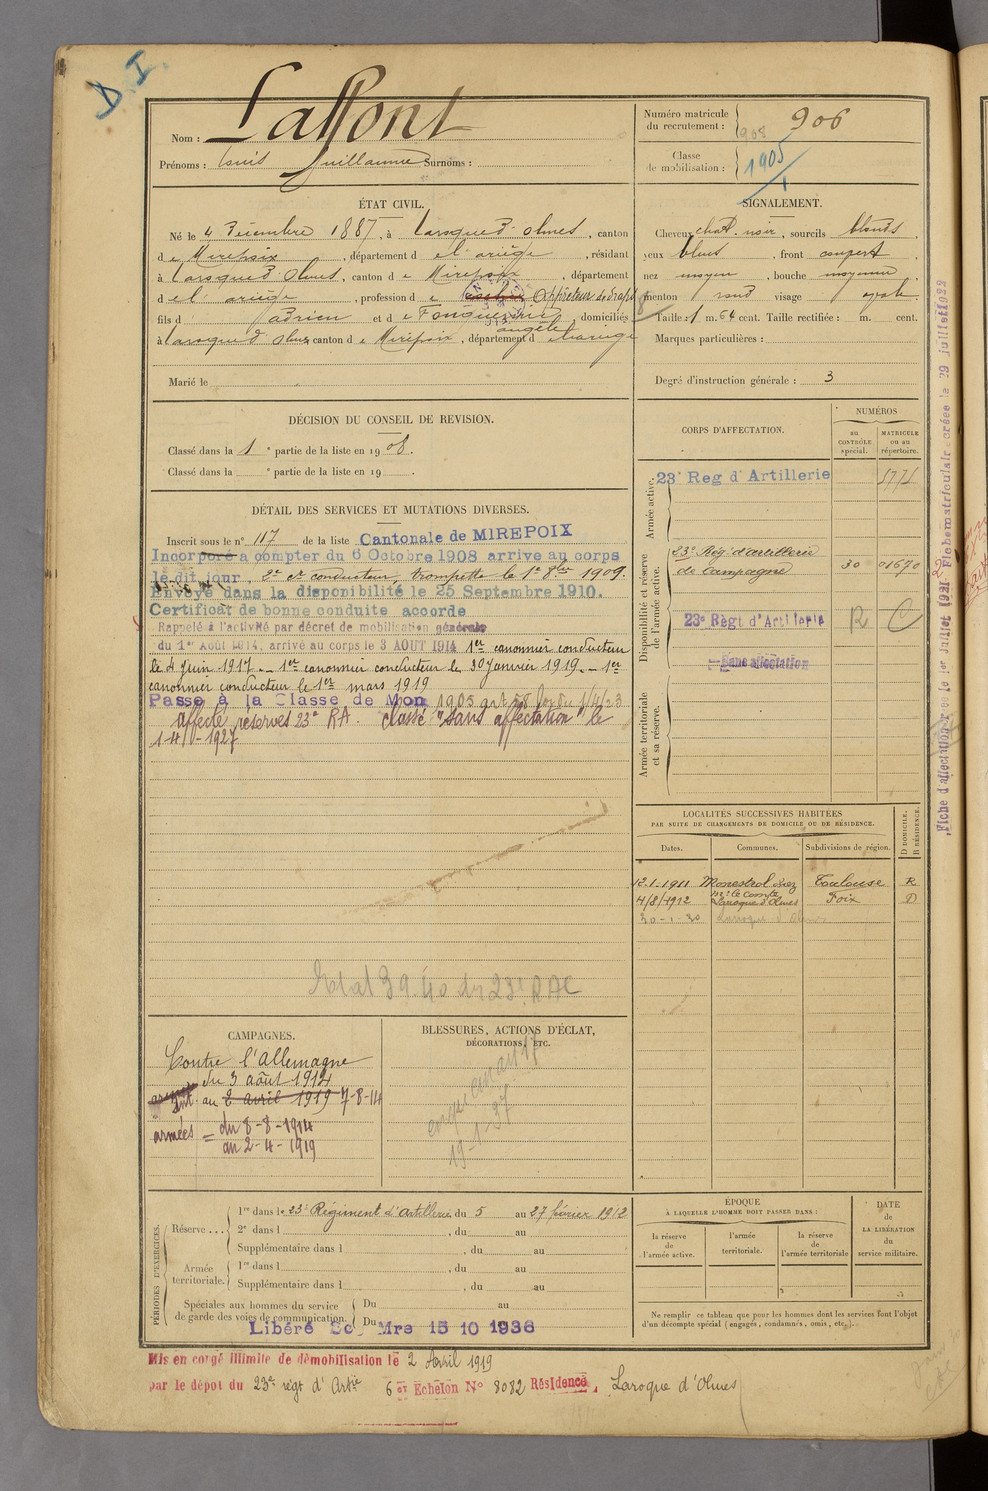 D. I.
Nom : Laffont
Prénoms : Louis Guillaume Surnoms :
Numéro matricule du recrutement : 906
908
Classe de mobilisation : 1905
ÉTAT CIVIL.
Né le 4 Décembre 1887, à Laroque d'Olmes, canton
de Mirepoix, département de l'ariège, résidant
à Laroque d'Olmes, canton de Mirepoix, département
de l'ariège, profession de Appréteur de draps
fils d'adrien et de domiciliés
angèle
à Laroque d'Olmes canton de Mirepoix, département d ariège
Marié le
SIGNALEMENT.
Cheveux chat. noir, sourcils blonds
yeux bleus, front couvert
nez moyen, bouche moyenne
menton rond visage ovale
Taille : 1 m. 64 cent. Taille rectifiée : m. cent.
Marques particulières :
Degré d'instruction générale : 3
DÉCISION DU CONSEIL DE REVISION.
Classé dans la 1 e partie de la liste en 1908.
Classé dans la e partie de la liste en 19 .
DÉTAIL DES SERVICES ET MUTATIONS DIVERSES.
Inscrit sous le n° 117 de la liste Cantonale de MIREPOIX
Incorporé a compter du 6 Octobre 1908 arrive au corps
le dit jour, 2e cr conducteur, trompette le 1er 8bre 1909.
Envoyé dans la disponibilité le 25 Septembre 1910.
Certificat de bonne conduite accorde
Rappelé à l'activité par décret de mobilisation générale
du 1er Août 1914, arrivé au corps le 3 AOUT 1914 1er canonnier conducteur
le 4 Juin 1917. – 1er canonnier conducteur le 30 Janvier 1919. – 1er
canonnier conducteur le 1er mars 1919
Passé à la Classe de Mon 1905 art 58 loi du 1/4/23
affecté réserves 23e RA. classé "sans affectation" le
1-4-1927
Etat 39.40 du 23e RAC
CORPS D'AFFECTATION.
NUMÉROS
au CONTRÔLE spécial.
MATRICULE ou au répertoire.
Armée active.
23e Reg d'Artillerie
Disponibilité et réserve de l'armée active.
23e Rég. d'artillerie
de Campagne 30 01670
23e Règt d'Artillerie R C
Sans affectation
Armée territoriale et sa réserve.
Fiche d'affectation créée le 1er Juillet 1921 Fiche matriculaire créée le 29 juillet 1922
LOCALITÉS SUCCESSIVES HABITÉES
PAR SUITE DE CHANGEMENTS DE DOMICILE OU DE RÉSIDENCE.
Dates. Communes. Subdivisions de région. D DOMICILE. R RÉSIDENCE.
12.1.1911 Monestrol chez Toulouse R
Mr le Comte
4/8/1912 Laroque d'Olmes Foix D
30-1-30 Laroque d'Olmes
CAMPAGNES.
Contre l'Allemagne
du 3 août 1914
int. au 2 avril 1919 7-8-14
armées = du 8-8-1914
au 2-4-1919
BLESSURES, ACTIONS D'ÉCLAT,
DÉCORATIONS, ETC.
19-1-37
PÉRIODES D'EXERCICES.
Réserve ... 1re dans le 23e Régiment d'artillerie, du 5 au 27 février 1912
2e dans l , du au
Supplémentaire dans l , du au
Armée territoriale. 1re dans l , du au
Supplémentaire dans l , du au
Spéciales aux hommes du service de garde des voies de communication. Du au
Du
Libéré Sce Mre 15 10 1936
ÉPOQUE
À LAQUELLE L'HOMME DOIT PASSER DANS :
la réserve de l'armée active.
l'armée territoriale.
la réserve de l'armée territoriale
DATE de LA LIBÉRATION du service militaire.
Ne remplir ce tableau que pour les hommes dont les services font l'objet
d'un décompte spécial (engagés, condamnés, omis, etc.).
Mis en congé illimité de démobilisation le 2 Avril 1919
par le dépot du 23e régt d'Artie 6 et Echelon N° 8082 Résidence, Laroque d'Olmes